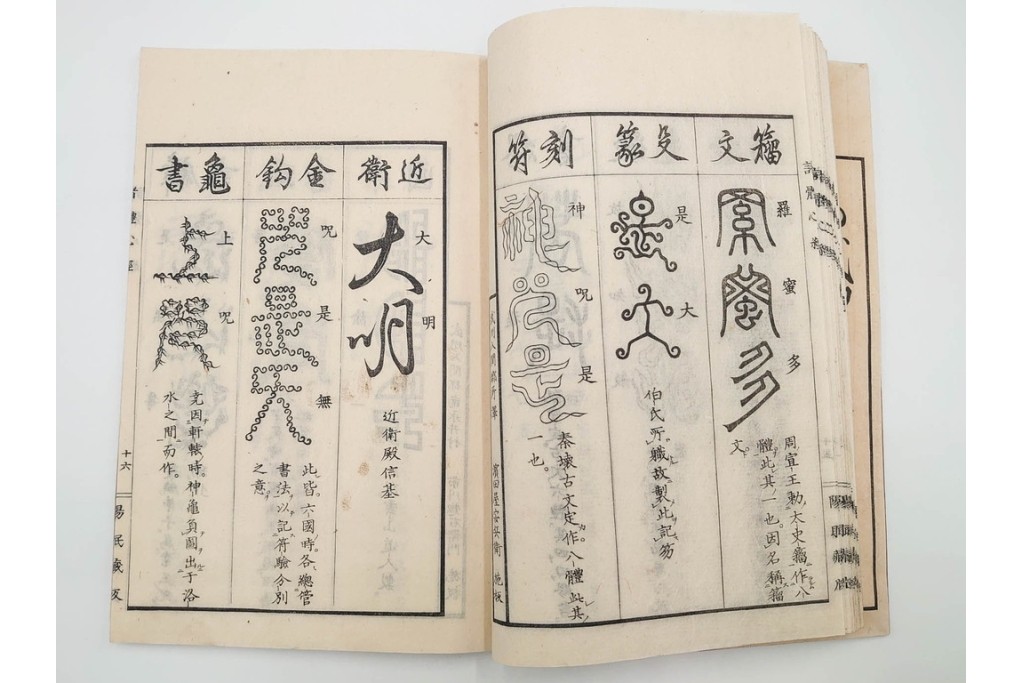 籕文
羅
蜜
多
周宣王勅太史籕作八
體此其一也因名稱籕
文。
殳篆
是
大
伯氏所職故製此記笏
刻符
神
呪
是
秦壊古文定作八體此其
一也。
濱田屋安兵衛 施板
近衛
大明
大
明
近衛殿信基
金鈎
呪
是
無
此皆六國時各總管
書法以記符驗分別
之意
龜書
上
呪
堯因軒轅時。神龜負圖出于洛
水之間而作。
十六